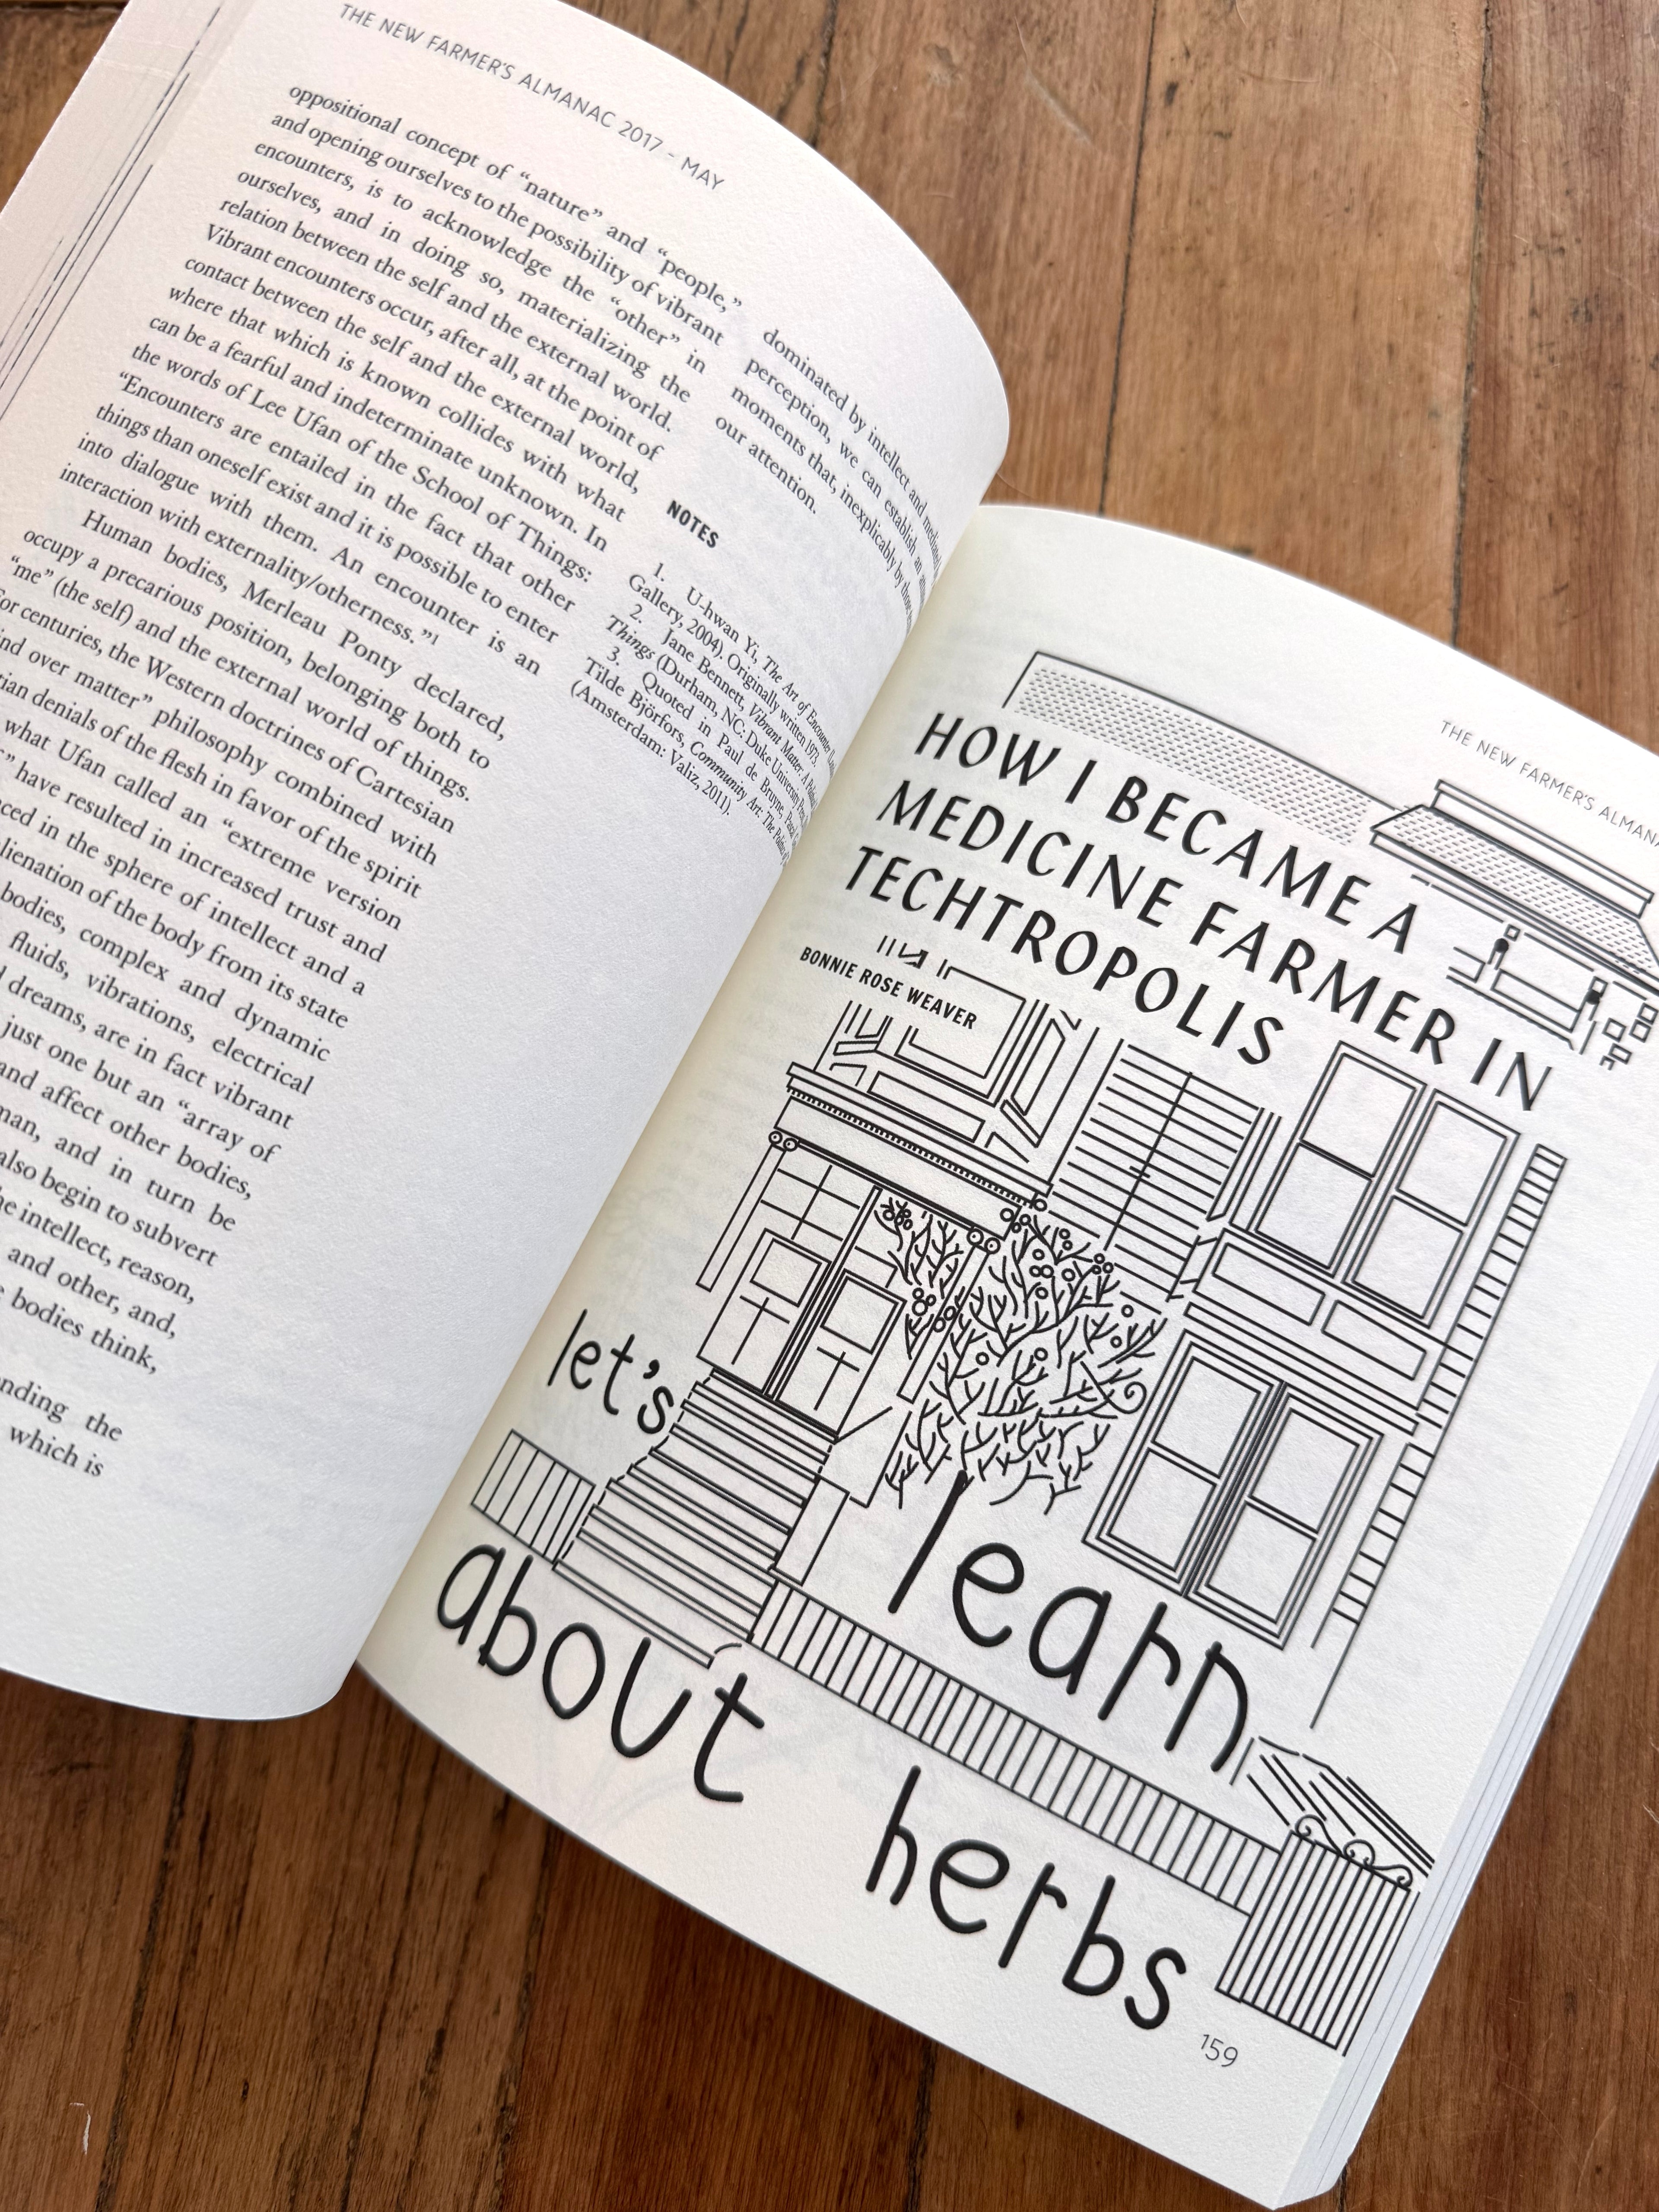 THE NEW FARMER'S ALMANAC 2017 - MAY
oppositional concept of “nature” and “people,”
and opening ourselves to the possibility of vibrant
encounters, is to acknowledge the “other” in
ourselves, and in doing so, materializing the
relation between the self and the external world.
Vibrant encounters occur, after all, at the point of
contact between the self and the external world,
where that which is known collides with what
can be a fearful and indeterminate unknown. In
the words of Lee Ufan of the School of Things:
“Encounters are entailed in the fact that other
things than oneself exist and it is possible to enter
into dialogue with them. An encounter is an
interaction with externality/otherness.”1
Human bodies, Merleau Ponty declared,
occupy a precarious position, belonging both to
“me” (the self) and the external world of things.
for centuries, the Western doctrines of Cartesian
over matter” philosophy combined with
denials of the flesh in favor of the spirit
what Ufan called an “extreme version
have resulted in increased trust and
in the sphere of intellect and a
alienation of the body from its state
bodies, complex and dynamic
fluids, vibrations, electrical
dreams, are in fact vibrant
just one but an “array of
and affect other bodies,
and in turn be
also begin to subvert
intellect, reason,
and other, and,
bodies think,
the
which is
dominated by intellect and
perception, we can establish an
moments that, inexplicably by
our attention.
NOTES
1. U-hwan Yi, The Art of Encounter
Gallery, 2004). Originally written 1973.
2. Jane Bennett, Vibrant Matter: A
Things (Durham, NC: Duke University
3. Quoted in Paul de Bruyne,
Tilde Björfors, Community Art: The Politics
(Amsterdam: Valiz, 2011).
THE NEW FARMER'S
HOW I BECAME A
MEDICINE FARMER IN
TECHTROPOLIS
BONNIE ROSE WEAVER
let's
learn
about
herbs
159